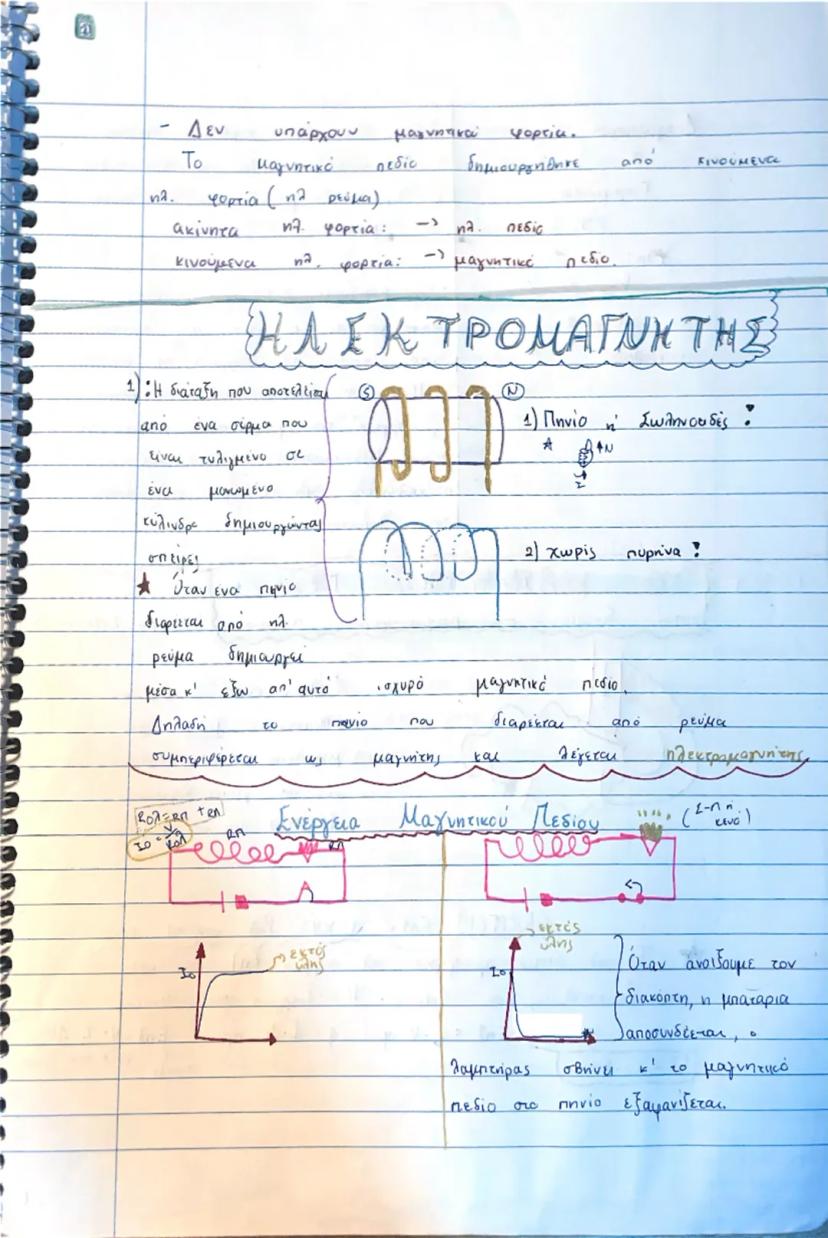 - Δεν υπάρχουν μαγνητικά φορτία.
Το μαγνητικό πεδίο δημιουργήθηκε από κινούμενα
ηλ. φορτία (ηλ ρεύμα)
ακίνητα ηλ. φορτία: -> ηλ. πεδίο
κινούμενα ηλ. φορτία: -> μαγνητικό πεδίο.
ΗΛΕΚΤΡΟΜΑΓΝΗΤΗΣ
1): Η διάταξη που αποτελείται
από ένα σύρμα που
είναι τυλιγμένο σε
ένα μονωμένο
κύλινδρο δημιουργώντας
σπείρες
★ Όταν ενα πηνίο
διαρεεται από ηλ.
ρεύμα δημιουργεί
μέσα κ' εξω απ' αυτό ισχυρό μαγνητικό πεδίο.
Δηλαδή το πηνίο που διαρέεται από ρεύμα
συμπεριφέρεται ως μαγνήτης και λέγεται ηλεκτρομαγνήτης
S N
1) Πηνίο ή Σωληνοειδές:
★ N
I
2) χωρίς πυρήνα:
Ενέργεια Μαγνητικού Πεδίου
Rολ=Rπ + Rλ
Io = V/Rολ
Rπ Rλ
Io εκτός
ύλης
Io εκτός
ύλης
Όταν ανοιξουμε τον
διακόπτη, η μπαταρία
αποσυνδέεται, ο
λαμπτήρας σβήνει κ' το μαγνητικό
πεδίο στο πηνίο εξαφανίζεται.